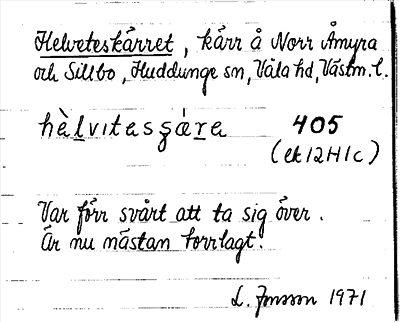 Helveteskärret, kärr å Norr Åmyra
och Sillbo, Huddunge sn, Våla hd, Västm. l.
hèlvıtesʒæ̀re 405
(ek 12H1c)
Var förr svårt att ta sig över.
Är nu nästan torrlagt.
L. Jonsson 1971